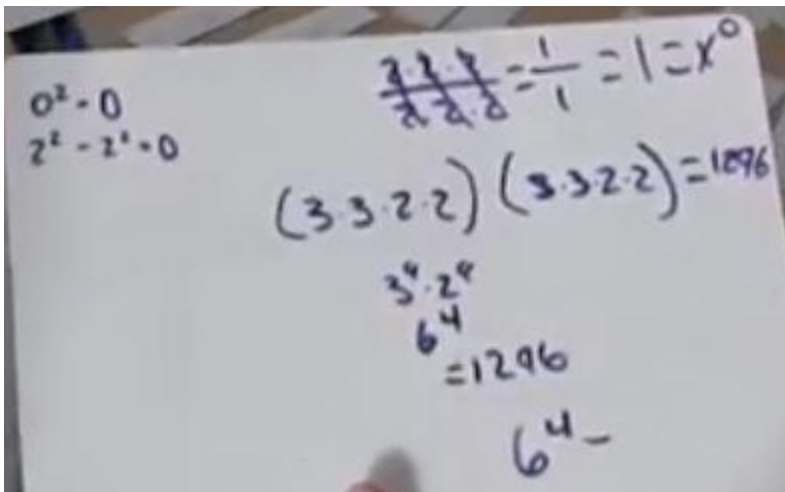 0² = 0
2² - 2² = 0
2·2·2 / 2·2·2 = 1/1 = 1 = x⁰
(3·3·2·2) (3·3·2·2) = 1296
3⁴·2⁴
6⁴
=1296
6⁴ -